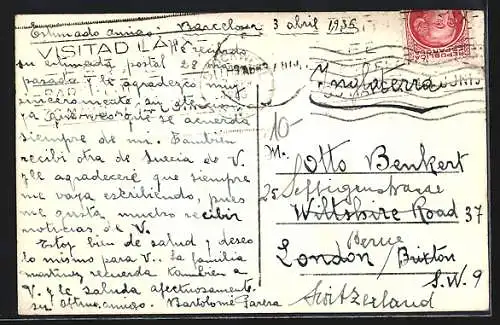 Estimado amigo: Barcelona 3 abril 1935
VISITAD LA
He recibido
su estimada postal 28 marzo
pasado y le agradezco muy
sinceramente su atencion
ya que veo que se acuerda
siempre de mi. Tambien
recibi otra de Suecia de V.
y le agradeceré que siempre
me vaya escribiendo, pues
me gusta mucho recibir
noticias de V.
Estoy bien de salud y deseo
lo mismo para V.. La familia
Martinez recuerda tambien a
V. y le saluda afectuosamente
su afmo. amigo. Bartolomé Parera
Inglaterra
10-
M. Otto Benkert
25 Seftigenstrasse
Wiltshire Road 37
Berne
London / Brixton
S.W. 9
Switzerland